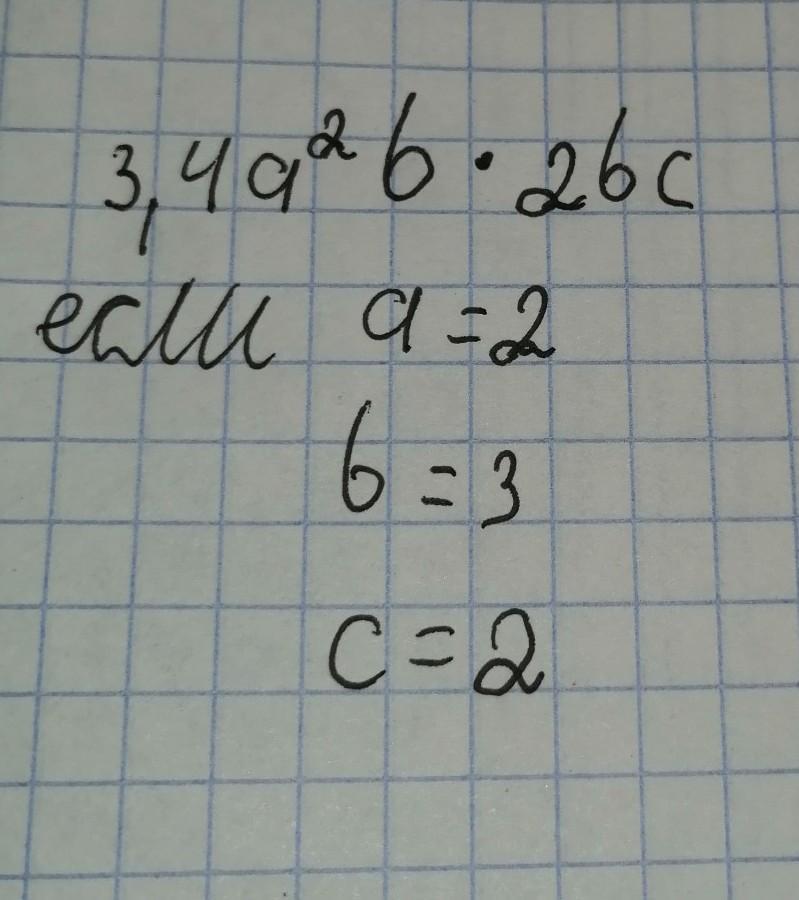 3,4a²b · 2bc
если a = 2
b = 3
c = 2